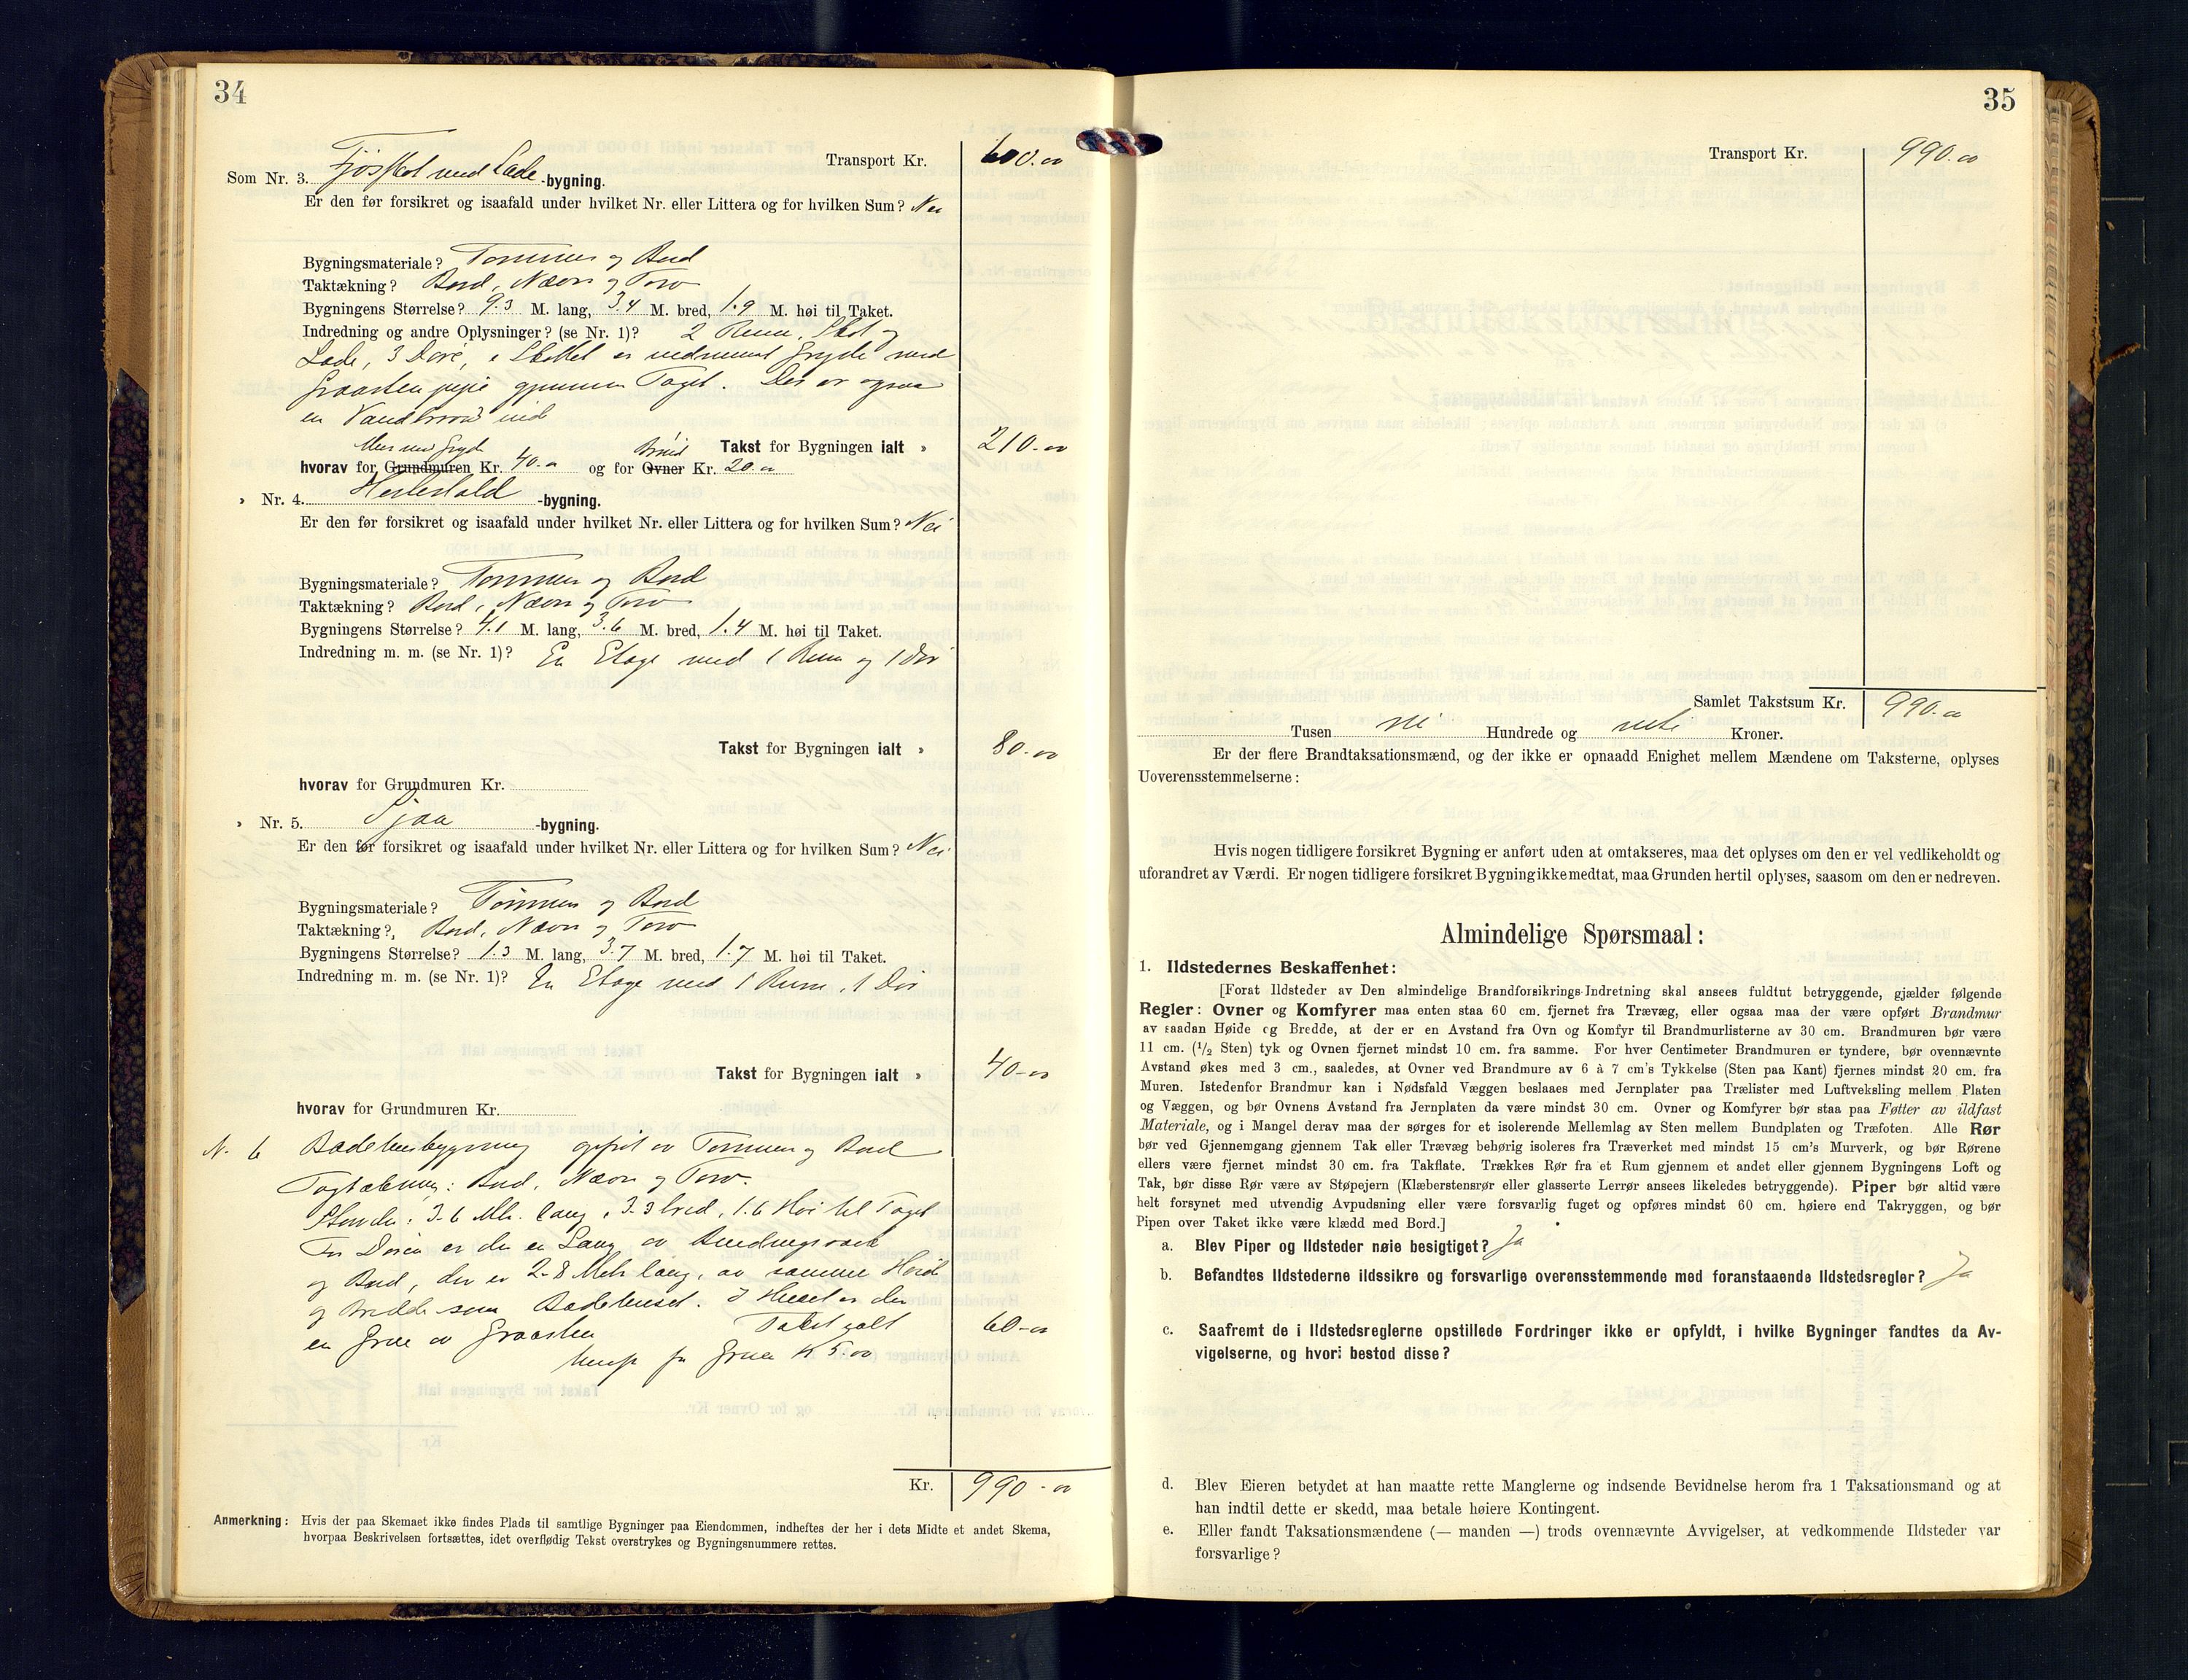 34
Transport Kr. 600.00
Som Nr. 3. Fjösstel med Lade -bygning.
Er den før forsikret og isaafald under hvilket Nr. eller Littera og for hvilken Sum? Nei
Bygningsmateriale? Tømmer og Bord
Taktækning? Bord, Næver og Torv
Bygningens Størrelse? 9.3 M. lang, 3.4 M. bred, 1.9 M. høi til Taket.
Indredning og andre Oplysninger? (se Nr. 1)? 2 Rum, Stel og
Lade, 3 Döre, i Stellet er indmuret Gryde med
Graasten pipe gjennem Taget. Der er ogsaa
en Vandbrönd ind
Takst for Bygningen ialt » 210.00
Mur med Gryde Brönd
hvorav for Grundmuren Kr. 40.00 og for Ovner Kr. 20.00
» Nr. 4. Hestestald -bygning.
Er den før forsikret og isaafald under hvilket Nr. eller Littera og for hvilken Sum? Nei
Bygningsmateriale? Tømmer og Bord
Taktækning? Bord, Næver og Torv
Bygningens Størrelse? 4.1 M. lang, 3.6 M. bred, 1.4 M. høi til Taket.
Indredning m. m. (se Nr. 1)? En Etage med 1 Rum og 1 Dör
Takst for Bygningen ialt » 80.00
hvorav for Grundmuren Kr.
» Nr. 5. Sjaa -bygning.
Er den før forsikret og isaafald under hvilket Nr. eller Littera og for hvilken Sum? Nei
Bygningsmateriale? Tømmer og Bord
Taktækning? Bord, Næver og Torv
Bygningens Størrelse? 1.3 M. lang, 3.7 M. bred, 1.7 M. høi til Taket.
Indredning m. m. (se Nr. 1)? En Etage med 1 Rum, 1 Dör
Takst for Bygningen ialt » 40-00
hvorav for Grundmuren Kr.
N. 6 Badehusbygning opført av Tømmer og Bord
Tagtækning: Bord, Næver og Torv.
3.6 Mtr. lang, 3.3 bred, 1.6 Höi til Taget
For Dören er der en Svang av Bindingsværk
og Bord, der er 2.8 Metr lang, av samme Höide
og Bredde som Badehuset. I Huset er der
en Grue av Graasten Takst ialt 60-00
for Gruen Kr 5.00
Kr. 990-00
Anmerkning: Hvis der paa Skemaet ikke findes Plads til samtlige Bygninger paa Eiendommen, indheftes der her i dets Midte et andet Skema,
hvorpaa Beskrivelsen fortsættes, idet overflødig Tekst overstrykes og Bygningsnummere rettes.
35
Transport Kr. 990.00
Samlet Takstsum Kr. 990.00
Tusen ni Hundrede og nitti Kroner.
Er der flere Brandtaksationsmænd, og der ikke er opnaadd Enighet mellem Mændene om Taksterne, oplyses
Uoverensstemmelserne:
Hvis nogen tidligere forsikret Bygning er anført uden at omtakseres, maa det oplyses om den er vel vedlikeholdt og
uforandret av Værdi. Er nogen tidligere forsikret Bygning ikke medtat, maa Grunden hertil oplyses, saasom om den er nedreven.
Almindelige Spørsmaal:
1. Ildstedernes Beskaffenhet:
[Forat Ildsteder av Den almindelige Brandforsikrings-Indretning skal ansees fuldtut betryggende, gjælder følgende
Regler: Ovner og Komfyrer maa enten staa 60 cm. fjernet fra Trævæg, eller ogsaa maa der være opført Brandmur
av saadan Høide og Bredde, at der er en Avstand fra Ovn og Komfyr til Brandmurlisterne av 30 cm. Brandmuren bør være
11 cm. (1/2 Sten) tyk og Ovnen fjernet mindst 10 cm. fra samme. For hver Centimeter Brandmuren er tyndere, bør ovennævnte
Avstand økes med 3 cm., saaledes, at Ovner ved Brandmure av 6 à 7 cm's Tykkelse (Sten paa Kant) fjernes mindst 20 cm. fra
Muren. Istedenfor Brandmur kan i Nødsfald Væggen beslaaes med Jernplater paa Trælister med Luftveksling mellem Platen
og Væggen, og bør Ovnens Avstand fra Jernplaten da være mindst 30 cm. Ovner og Komfyrer bør staa paa Føtter av ildfast
Materiale, og i Mangel derav maa der sørges for et isolerende Mellemlag av Sten mellem Bundplaten og Træfoten. Alle Rør
bør ved Gjennemgang gjennem Tak eller Trævæg behørig isoleres fra Træverket med mindst 15 cm's Murverk, og bør Rørene
ellers være fjernet mindst 30 cm. fra Takflate. Trækkes Rør fra et Rum gjennem et andet eller gjennem Bygningens Loft og
Tak, bør disse Rør være av Støpejern (Klæberstensrør eller glasserte Lerrør ansees likeledes betryggende). Piper bør altid være
helt forsynet med utvendig Avpudsning eller være forsvarlig fuget og opføres mindst 60 cm. høiere end Takryggen, og bør
Pipen over Taket ikke være klædd med Bord.]
a. Blev Piper og Ildsteder nøie besigtiget? Ja
b. Befandtes Ildstederne ildssikre og forsvarlige overensstemmende med foranstaaende Ildstedsregler? Ja
c. Saafremt de i Ildstedsreglerne opstillede Fordringer ikke er opfyldt, i hvilke Bygninger fandtes da Av-
vigelserne, og hvori bestod disse?
d. Blev Eieren betydet at han maatte rette Manglerne og indsende Bevidnelse herom fra 1 Taksationsmand og at
han indtil dette er skedd, maa betale høiere Kontingent.
e. Eller fandt Taksationsmændene (— manden —) trods ovennævnte Avvigelser, at vedkommende Ildsteder var
forsvarlige?